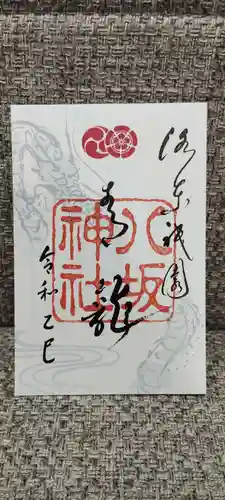 洛東祇園
青龍
八坂神社
令和乙巳